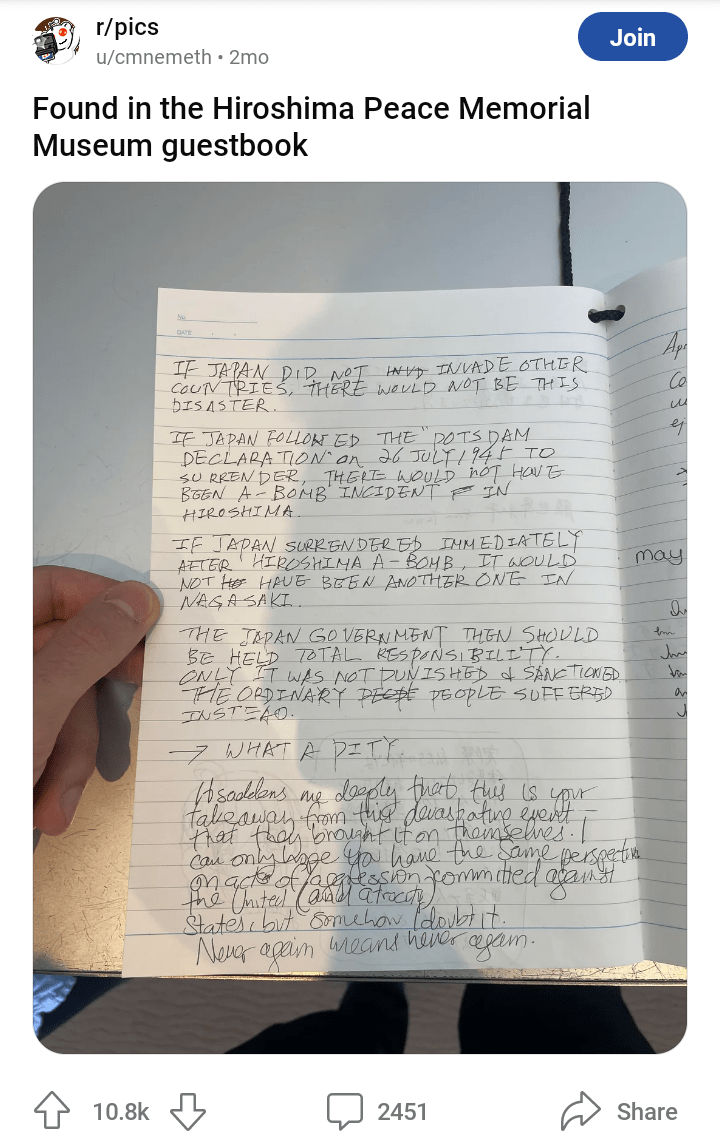 r/pics
u/cmnemeth • 2mo
Join
Found in the Hiroshima Peace Memorial
Museum guestbook
No.
DATE
IF JAPAN DID NOT INVADE OTHER
COUNTRIES, THERE WOULD NOT BE THIS
DISASTER.
IF JAPAN FOLLOWED THE "POTSDAM
DECLARATION" on 26 JULY 1945 TO
SURRENDER, THERE WOULD NOT HAVE
BEEN A-BOMB INCIDENT IN
HIROSHIMA.
IF JAPAN SURRENDERED IMMEDIATELY
AFTER HIROSHIMA A-BOMB, IT WOULD
NOT HAVE BEEN ANOTHER ONE IN
NAGASAKI.
THE JAPAN GOVERNMENT THEN SHOULD
BE HELD TOTAL RESPONSIBILITY.
ONLY IT WAS NOT PUNISHED & SANCTIONED
THE ORDINARY PEOPLE SUFFERED
INSTEAD.
→ WHAT A PITY.
It saddens me deeply that this is your
takeaway from this devastating event –
that they brought it on themselves. I
can only hope you have the same perspective
on acts of aggression committed against
the United (and atrocity)
States, but somehow I doubt it.
Never again means never again.
may
10.8k
2451
Share